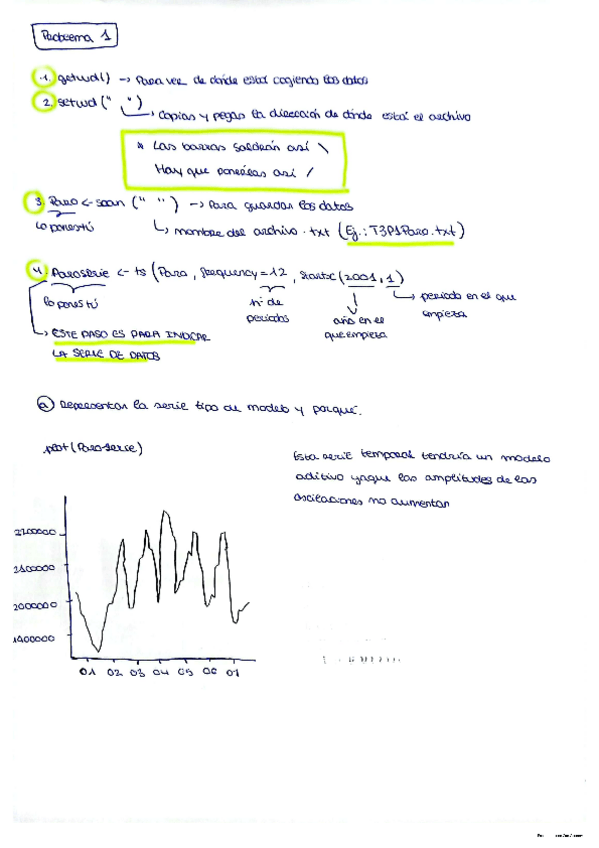 Problema 1
1. getwd() → Para ver de donde está cogiendo los datos
2. setwd(" ")
↳ Copias y pegas la dirección de dónde está el archivo
* Las barras saldrán así \
Hay que ponerlas así /
3. Paro <- scan (" ") → Para guardar los datos
lo pones tú
↳ nombre del archivo.txt (Ej.: T3P1Paro.txt)
4. Paroserie <- ts (Paro, frequency=12, start=c(2001,1)
lo pones tú
nº de periodos
año en el que empieza
periodo en el que empieza
↳ ESTE PASO ES PARA INVOCAR
LA SERIE DE DATOS
a) Representar la serie tipo de modelo y porqué.
plot(Paroserie)
Esta serie temporal tendría un modelo
aditivo ya que las amplitudes de las
oscilaciones no aumentan
2000000
1400000
01 02 03 04 05 06 07